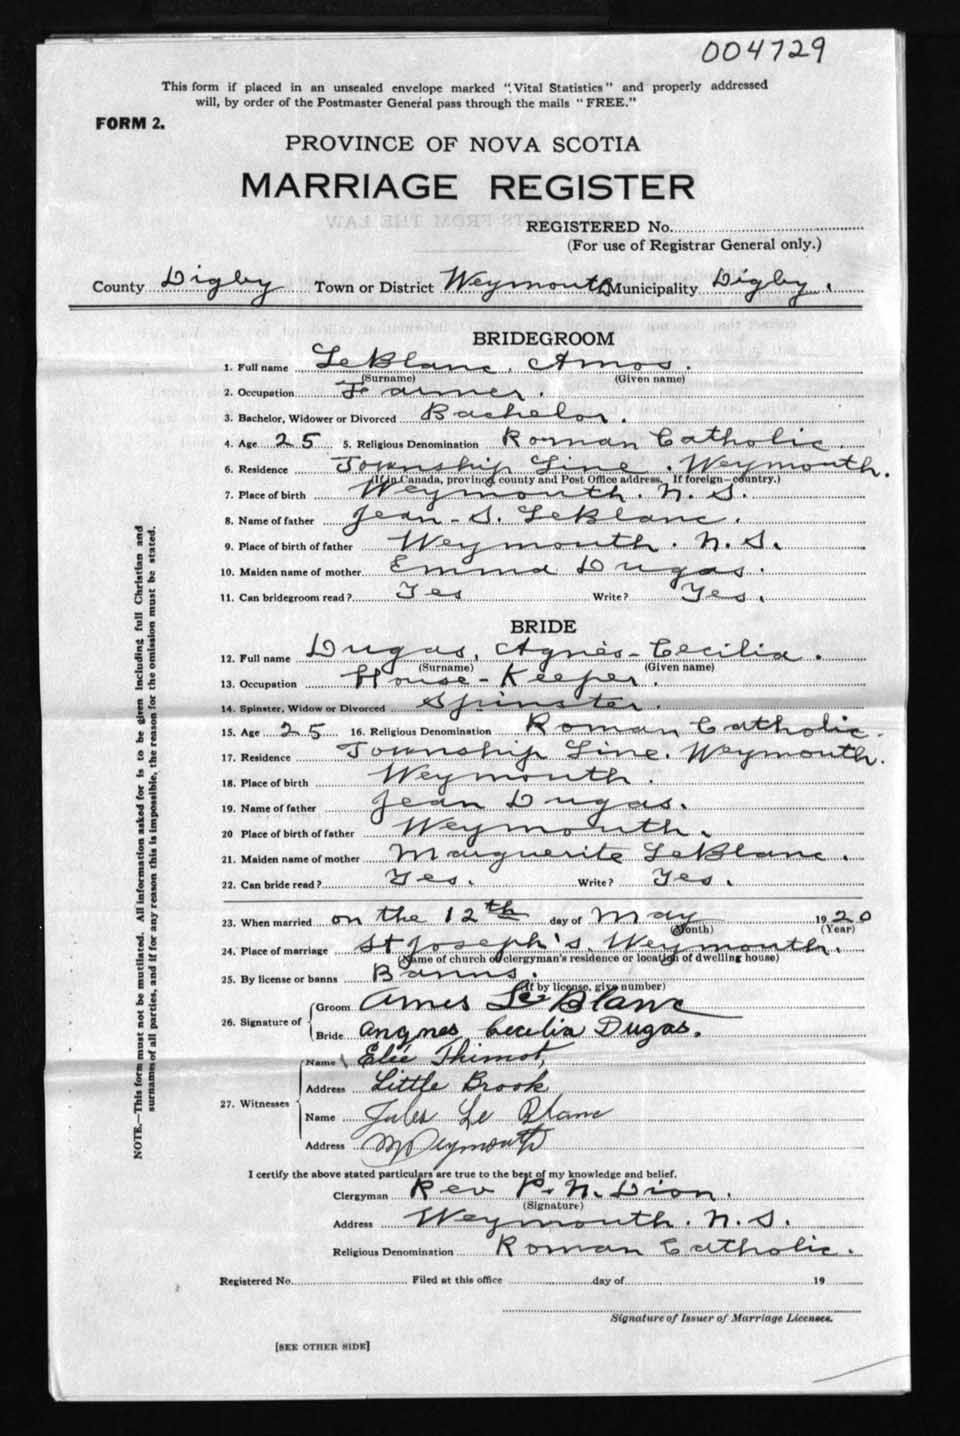 004729
This form if placed in an unsealed envelope marked "Vital Statistics" and properly addressed
will, by order of the Postmaster General pass through the mails "FREE."
FORM 2.
PROVINCE OF NOVA SCOTIA
MARRIAGE REGISTER
REGISTERED No.
(For use of Registrar General only.)
County Digby Town or District Weymouth Municipality Digby.
BRIDEGROOM
1. Full name LeBlanc, Amos.
(Surname) (Given name)
2. Occupation Farmer.
3. Bachelor, Widower or Divorced Bachelor.
4. Age 25 5. Religious Denomination Roman Catholic.
6. Residence Township Line. Weymouth.
(If in Canada, province county and Post Office address. If foreign—country.)
7. Place of birth Weymouth. N. S.
8. Name of father Jean-S. LeBlanc.
9. Place of birth of father Weymouth. N. S.
10. Maiden name of mother Emma Dugas.
11. Can bridegroom read? Yes Write? Yes.
BRIDE
12. Full name Dugas, Agnès-Cecilia.
(Surname) (Given name)
13. Occupation House-Keeper.
14. Spinster, Widow or Divorced Spinster.
15. Age 25 16. Religious Denomination Roman Catholic.
17. Residence Township Line. Weymouth.
18. Place of birth Weymouth.
19. Name of father Jean Dugas.
20 Place of birth of father Weymouth.
21. Maiden name of mother Marguerite LeBlanc.
22. Can bride read? Yes. Write? Yes.
23. When married on the 12th day of May 1920
(Month) (Year)
24. Place of marriage St Joseph's. Weymouth.
(Name of church or clergyman's residence or location of dwelling house)
25. By license or banns Banns.
(If by license, give number)
26. Signature of Groom Ames Le Blanc
Bride Angnes Cecilia Dugas.
27. Witnesses Name Elie Thimot,
Address Little Brook
Name Jules Le Blanc
Address Weymouth
I certify the above stated particulars are true to the best of my knowledge and belief.
Clergyman Rev P. N. Dion.
(Signature)
Address Weymouth. N. S.
Religious Denomination Roman Catholic.
Registered No. Filed at this office day of 19
Signature of Issuer of Marriage Licenses.
[SEE OTHER SIDE]
NOTE.—This form must not be mutilated. All information asked for is to be given including full Christian and
surnames of all parties, and if for any reason this is impossible, the reason for the omission must be stated.